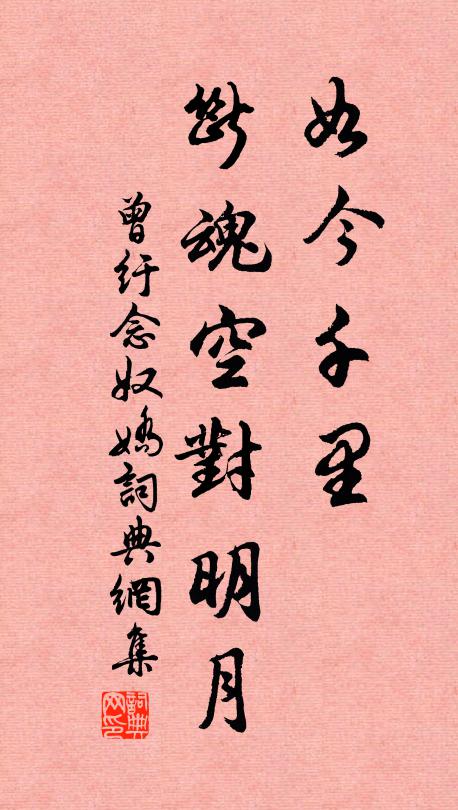 如今千里
斷魂空對明月
曾紆念奴嬌詞典網集
詞典網印